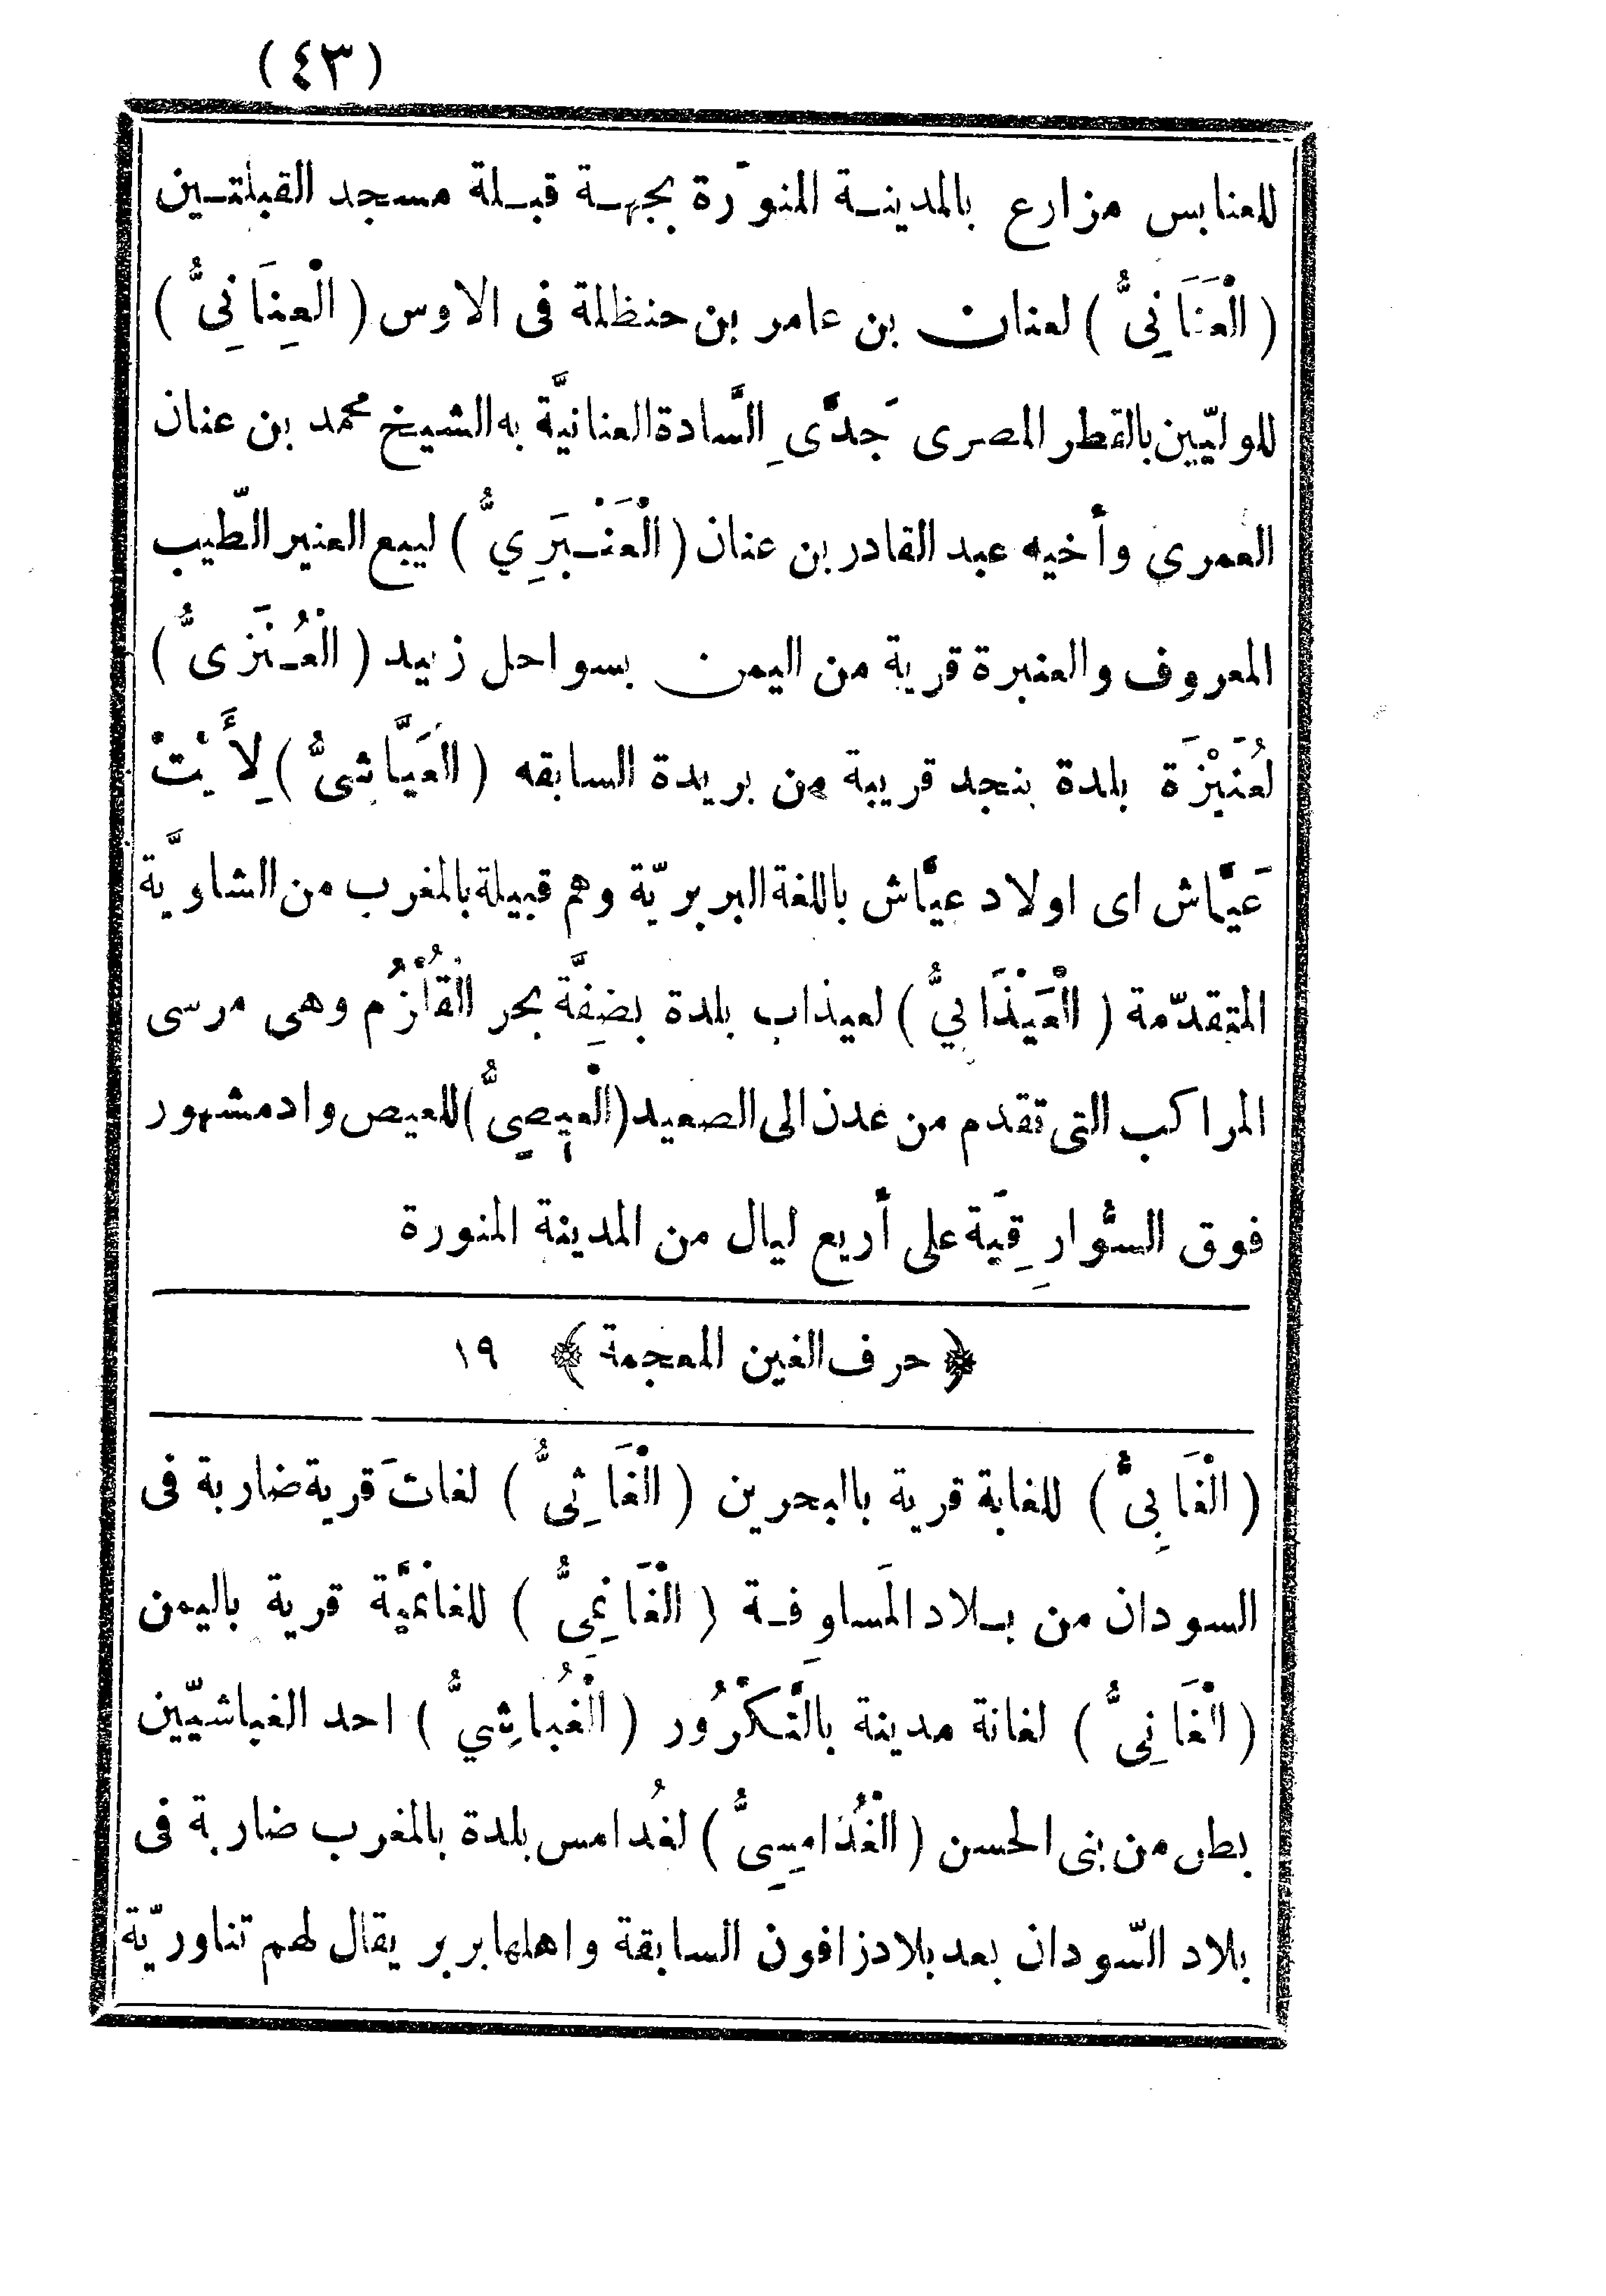 (٤٣)
للعنابس مزارع بالمدينة المنوّرة بجهة قبلة مسجد القبلتين
(الْعَنَانِىُّ) لعنان بن عامر بن حنظلة فى الاوس (الْعِنَانِىُّ)
للوليّين بالقطر المصرى جَدَّىِ السَّادة العنانيَّة به الشيخ محمد بن عنان
العمرى وأخيه عبد القادر بن عنان (الْعَنْبَرِيُّ) لبيع العنبر الطّيب
المعروف والعنبرة قرية من اليمن بسواحل زبيد (الْعُنَزِىُّ)
لعُنَيْزَة بلدة بنجد قريبة من بريدة السابقه (الْعَيَّاشِىُّ) لِأَيْتْ
عَيَّاش اى اولاد عيَّاش باللغة البربريّة وهم قبيلة بالمغرب من الشاويَّة
المتقدّمة (الْعَيْذَابِيُّ) لعيذاب بلدة بضِفَّة بحر الْقُلْزُم وهى مرسى
المراكب التى تقدم من عدن الى الصعيد (الْعِيصِىُّ) للعيص واد مشهور
فوق السُّوارِقِيَة على أربع ليال من المدينة المنورة
﴿حرف الغين المعجمة﴾ ١٩
(الْغَابِىُّ) للغابة قرية بالبحرين (الْغَاتِىُّ) لغاتَ قرية ضاربة فى
السودان من بلاد المَساوِفة (الْغَانِمِىُّ) للغانميَّة قرية باليمن
(الْغَانِىُّ) لغانة مدينة بالتَّكْرُور (الْغُباشِيُّ) احد الغباشيّين
بطن من بنى الحسن (الْغُدَامِسِىُّ) لغُدامس بلدة بالمغرب ضاربة فى
بلاد السّودان بعد بلاد زافون السابقة واهلها بربر يقال لهم تناوريّة